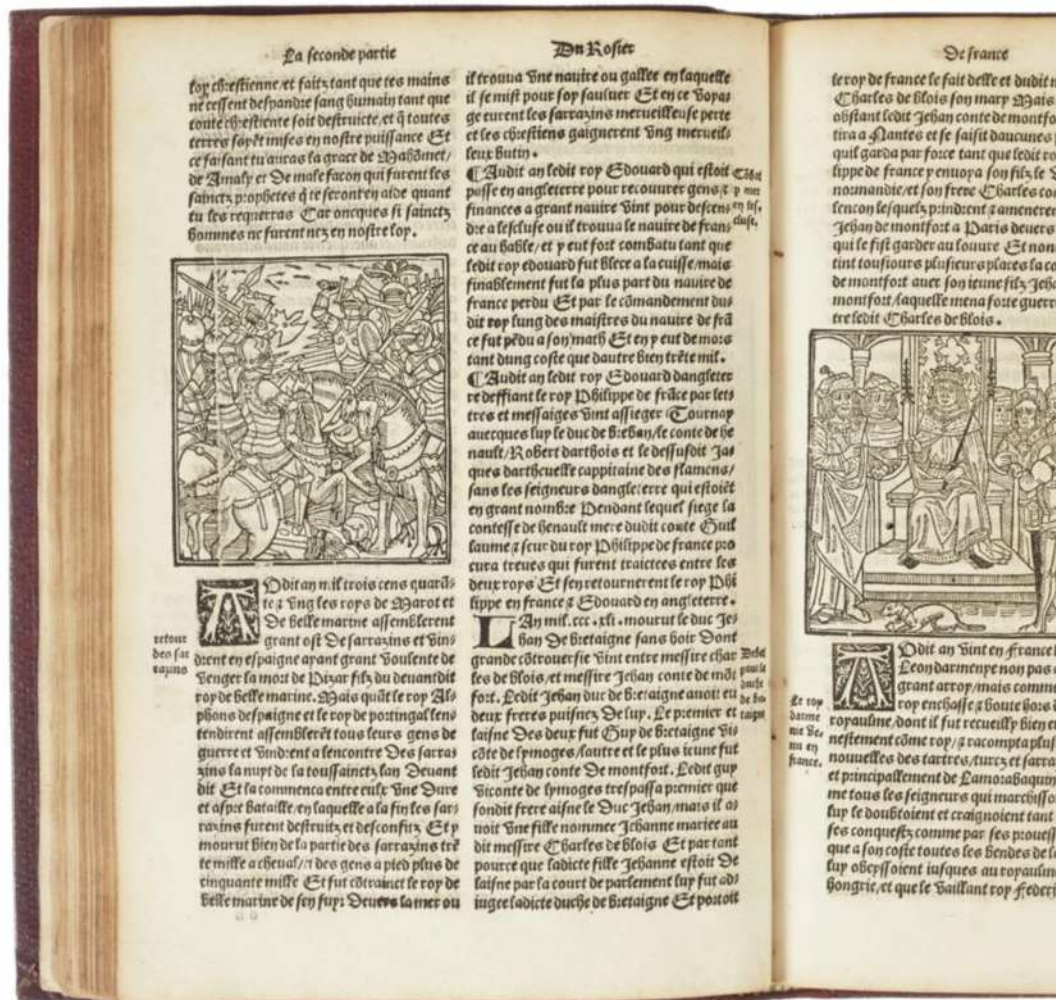 La seconde partie
loy chrestienne/et faitz tant que tes mains
ne cessent despandre sang humain tant que
toute chrestiente soit destruicte/et q̃ toutes
terres soyẽt mises en nostre puissance Et
ce faisant tu auras la grace de Mahõmet/
de Amaly et De male facon qui furent les
sainctz prophetes q̃ te seront en aide quant
tu les requerras Car oncques si sainctz
hommes ne furent nez en nostre loy.
AOdit an mil trois cens quarã-
te ⁊ vng les roys de Marot et
De belle marine assemblerent
grant ost De sarrazins et vin-
drent en espaigne ayant grant voulente de
venger la mort de Pizar filz du deuantdit
roy de belle marine. Mais quãt le roy Al-
phons despaigne et le roy de portingal lens
tendirent assemblerẽt tous leurs gens de
guerre et vindrent a lencontre Des sarra-
zins la nuyt de la toussainctz lan Deuant
dit Et la commenca entre eulx vne Dure
et aspre bataille/en laquelle a la fin les sar-
razins furent destruitz et desconfitz Et y
mourut bien de la partie des sarrazins trẽ
te mille a cheual/⁊ des gens a pied plus de
cinquante mille Et fut cõtrainct le roy de
belle marine de sen fuyr Deuers la mer ou
retour
des sar
razins
Du Rosier
il trouua vne nauire ou gallee en laquelle
il se mist pour soy sauluer Et en ce voya-
ge eurent les sarrazins merueilleuse perte
et les chrestiens gaignerent vng merueil-
leux butin.
¶Audit an ledit roy Edouard qui estoit
passe en angleterre pour recouurer gens ⁊
finances a grant nauire vint pour descen-
dre a lescluse ou il trouua le nauire de fran-
ce au hable/et y eut fort combatu tant que
ledit roy edouard fut blece a la cuisse/mais
finablement fut la plus part du nauire de
france perdu Et par le cõmandement du-
dit roy lung des maistres du nauire de frã
ce fut pẽdu a son math Et en y eut de mors
tant dung coste que dautre bien trẽte mil.
¶Audit an ledit roy Edouard dangleter
re deffiant le roy Philippe de frãce par let-
tres et messaiges vint assieger Tournay
auecques luy le duc de breban/le conte de he
nault/Robert darthois et le dessusdit Ja-
ques dartheuelle cappitaine des flamens/
sans les seigneurs dangleterre qui estoiẽt
en grant nombre Pendant lequel siege la
contesse de henault mere dudit conte Guil
laume ⁊ seur du roy Philippe de france pro
cura treues qui furent traictees entre les
deux roys Et sen retournerent le roy Phi
lippe en france ⁊ Edouard en angleterre.
LAn mil.ccc.xli.mourut le duc Je-
han De bretaigne sans hoir Dont
grande cõtrouersie vint entre messire char
les de blois/et messire Jehan conte de mõt
fort. Ledit Jehan duc de bretaigne auoit eu
deux freres puisnez De luy. Le premier et
laisne Des deux fut Guy de bretaigne vi-
cõte de lymoges/lautre et le plus ieune fut
ledit Jehan conte De montfort. Ledit guy
viconte de lymoges trespassa premier que
sondit frere aisne le Duc Jehan/mais il a-
uoit vne fille nommee Jehanne mariee au
dit messire Charles de blois Et par tant
pource que ladicte fille Jehanne estoit De
laisne par la court de parlement luy fut ad-
iugee ladicte duche de bretaigne Et portoit
Cõbat
p mer
en les-
cluse.
Debat
pour le
duche
de bre
taigne
De france
le roy de france le fait delle et dudit
Charles de blois son mary Mais
obstant ledit Jehan conte de montfo
tira a Nantes et se saisit daucunes
quil garda par force tant que ledit ro
lippe de france y enuoya son filz le
normandie/et son frere Charles co
lencon lesquelz prindrent ⁊ amenere
Jehan de montfort a Paris deuers
qui le fist garder au louure Et non
tint tousiours plusieurs places la co
de montfort auec son ieune filz Jeha
montfort/laquelle mena forte guerr
tre ledit Charles de blois.
AOdit an vint en france
Leon darmenye non pas
grant arroy/mais comm
roy enchasse ⁊ boute hors
royaulme/dont il fut recueilly bien e
nestement cõme roy/⁊ racompta plus
nouuelles des tartres/turcz et sarra
et principallement de Lamorabaquin
me tous les seigneurs qui marchisso
luy le doubtoient et craignoient tant
ses conquestz comme par ses prouess
que a son coste toutes les bendes de
luy obeyssoient iusques au royaulme
hongrie/et que le vaillant roy Federi
Le roy
darme
nie ve-
nu en
france.